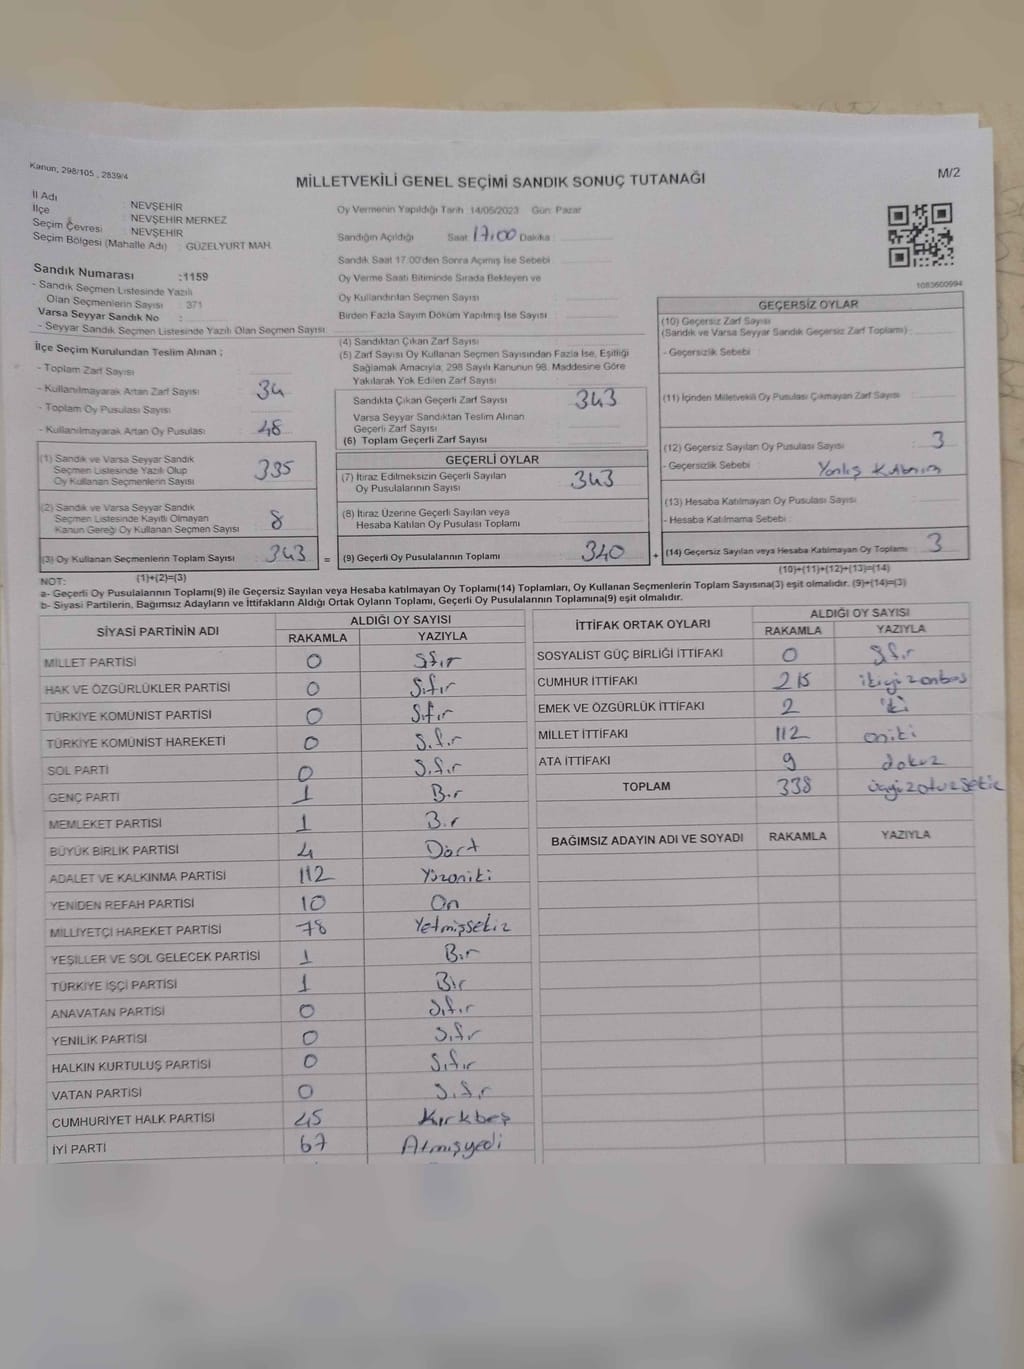 Kanun, 298/105 , 2839/4
MİLLETVEKİLİ GENEL SEÇİMİ SANDIK SONUÇ TUTANAĞI
M/2
İl Adı : NEVŞEHİR
İlçe : NEVŞEHİR MERKEZ
Seçim Çevresi : NEVŞEHİR
Seçim Bölgesi (Mahalle Adı) : GÜZELYURT MAH.
Sandık Numarası :1159
- Sandık Seçmen Listesinde Yazılı
Olan Seçmenlerin Sayısı : 371
Varsa Seyyar Sandık No :
- Seyyar Sandık Seçmen Listesinde Yazılı Olan Seçmen Sayısı
Oy Vermenin Yapıldığı Tarih :14/05/2023 Gün: Pazar
Sandığın Açıldığı Saat 17:00 Dakika :
Sandık Saat 17.00'den Sonra Açımış İse Sebebi :
Oy Verme Saati Bitiminde Sırada Bekleyen ve
Oy Kullandırılan Seçmen Sayısı
Birden Fazla Sayım Döküm Yapılmış İse Sayısı :
1083600994
İlçe Seçim Kurulundan Teslim Alınan ;
- Toplam Zarf Sayısı
- Kullanılmayarak Artan Zarf Sayısı 34
- Toplam Oy Pusulası Sayısı
- Kullanılmayarak Artan Oy Pusulası 48
(1) Sandık ve Varsa Seyyar Sandık
Seçmen Listesinde Yazılı Olup
Oy Kullanan Seçmenlerin Sayısı 335
(2) Sandık ve Varsa Seyyar Sandık
Seçmen Listesinde Kayıtlı Olmayan
Kanun Gereği Oy Kullanan Seçmen Sayısı 8
(3) Oy Kullanan Seçmenlerin Toplam Sayısı 343 =
(4) Sandıktan Çıkan Zarf Sayısı
(5) Zarf Sayısı Oy Kullanan Seçmen Sayısından Fazla İse, Eşitliği
Sağlamak Amacıyla, 298 Sayılı Kanunun 98. Maddesine Göre
Yakılarak Yok Edilen Zarf Sayısı
Sandıkta Çıkan Geçerli Zarf Sayısı 343
Varsa Seyyar Sandıktan Teslim Alınan
Geçerli Zarf Sayısı
(6) Toplam Geçerli Zarf Sayısı
GEÇERLİ OYLAR
(7) İtiraz Edilmeksizin Geçerli Sayılan
Oy Pusulalarının Sayısı 343
(8) İtiraz Üzerine Geçerli Sayılan veya
Hesaba Katılan Oy Pusulası Toplamı
(9) Geçerli Oy Pusulalarının Toplamı 340 +
GEÇERSİZ OYLAR
(10) Geçersiz Zarf Sayısı
(Sandık ve Varsa Seyyar Sandık Geçersiz Zarf Toplamı) :
- Geçersizlik Sebebi :
(11) İçinden Milletvekili Oy Pusulası Çıkmayan Zarf Sayısı :
(12) Geçersiz Sayılan Oy Pusulası Sayısı 3
- Geçersizlik Sebebi : Yanlış
(13) Hesaba Katılmayan Oy Pusulası Sayısı
- Hesaba Katılmama Sebebi :
(14) Geçersiz Sayılan veya Hesaba Katılmayan Oy Toplamı 3
(1)+(2)=(3)
(10)+(11)+(12)+(13)=(14)
NOT:
a- Geçerli Oy Pusulalarının Toplamı(9) ile Geçersiz Sayılan veya Hesaba katılmayan Oy Toplamı(14) Toplamları, Oy Kullanan Seçmenlerin Toplam Sayısına(3) eşit olmalıdır. (9)+(14)=(3)
b- Siyasi Partilerin, Bağımsız Adayların ve İttifakların Aldığı Ortak Oyların Toplamı, Geçerli Oy Pusulalarının Toplamına(9) eşit olmalıdır.
SİYASİ PARTİNİN ADI ALDIĞI OY SAYISI
RAKAMLA YAZIYLA
MİLLET PARTİSİ 0 Sıfır
HAK VE ÖZGÜRLÜKLER PARTİSİ 0 Sıfır
TÜRKİYE KOMÜNİST PARTİSİ 0 Sıfır
TÜRKİYE KOMÜNİST HAREKETİ 0 Sıfır
SOL PARTİ 0 Sıfır
GENÇ PARTİ 1 Bir
MEMLEKET PARTİSİ 1 Bir
BÜYÜK BİRLİK PARTİSİ 4 Dört
ADALET VE KALKINMA PARTİSİ 112 Yüzoniki
YENİDEN REFAH PARTİSİ 10 On
MİLLİYETÇİ HAREKET PARTİSİ 78 Yetmişsekiz
YEŞİLLER VE SOL GELECEK PARTİSİ 1 Bir
TÜRKİYE İŞÇİ PARTİSİ 1 Bir
ANAVATAN PARTİSİ 0 Sıfır
YENİLİK PARTİSİ 0 Sıfır
HALKIN KURTULUŞ PARTİSİ 0 Sıfır
VATAN PARTİSİ 0 Sıfır
CUMHURİYET HALK PARTİSİ 45 Kırkbeş
İYİ PARTİ 67 Atmışyedi
İTTİFAK ORTAK OYLARI ALDIĞI OY SAYISI
RAKAMLA YAZIYLA
SOSYALİST GÜÇ BİRLİĞİ İTTİFAKI 0 Sıfır
CUMHUR İTTİFAKI 215 ikiyüzonbeş
EMEK VE ÖZGÜRLÜK İTTİFAKI 2 iki
MİLLET İTTİFAKI 112 oniki
ATA İTTİFAKI 9 dokuz
TOPLAM 338 üçyüzotuzsekiz
BAĞIMSIZ ADAYIN ADI VE SOYADI RAKAMLA YAZIYLA